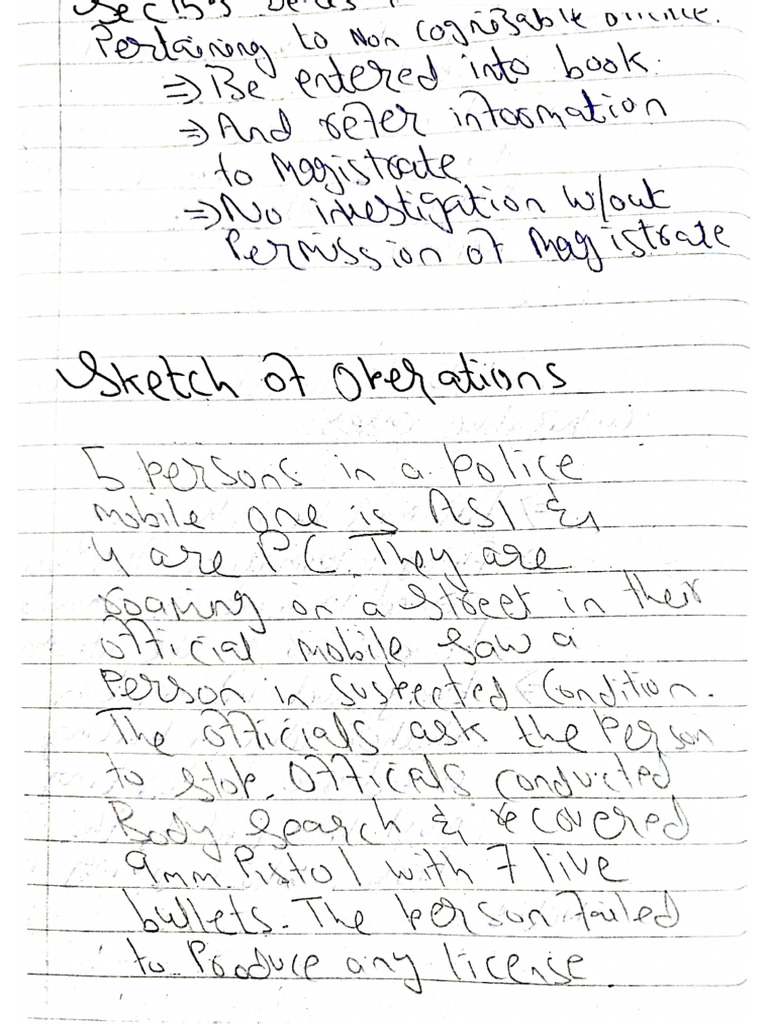 Pertaining to Non Cognizable
⇒ Be entered into book.
⇒ And refer information
to Magistrate
⇒ No investigation w/out
Permission of Magistrate
Sketch of Operations
5 persons in a Police
mobile one is ASI &
4 are PC. They are
roaming on a street in their
official mobile saw a
Person in suspected Condition.
The officials ask the Person
to stop. Officals conducted
Body Search & recovered
9mm Pistol with 7 live
bullets. The person failed
to Produce any license